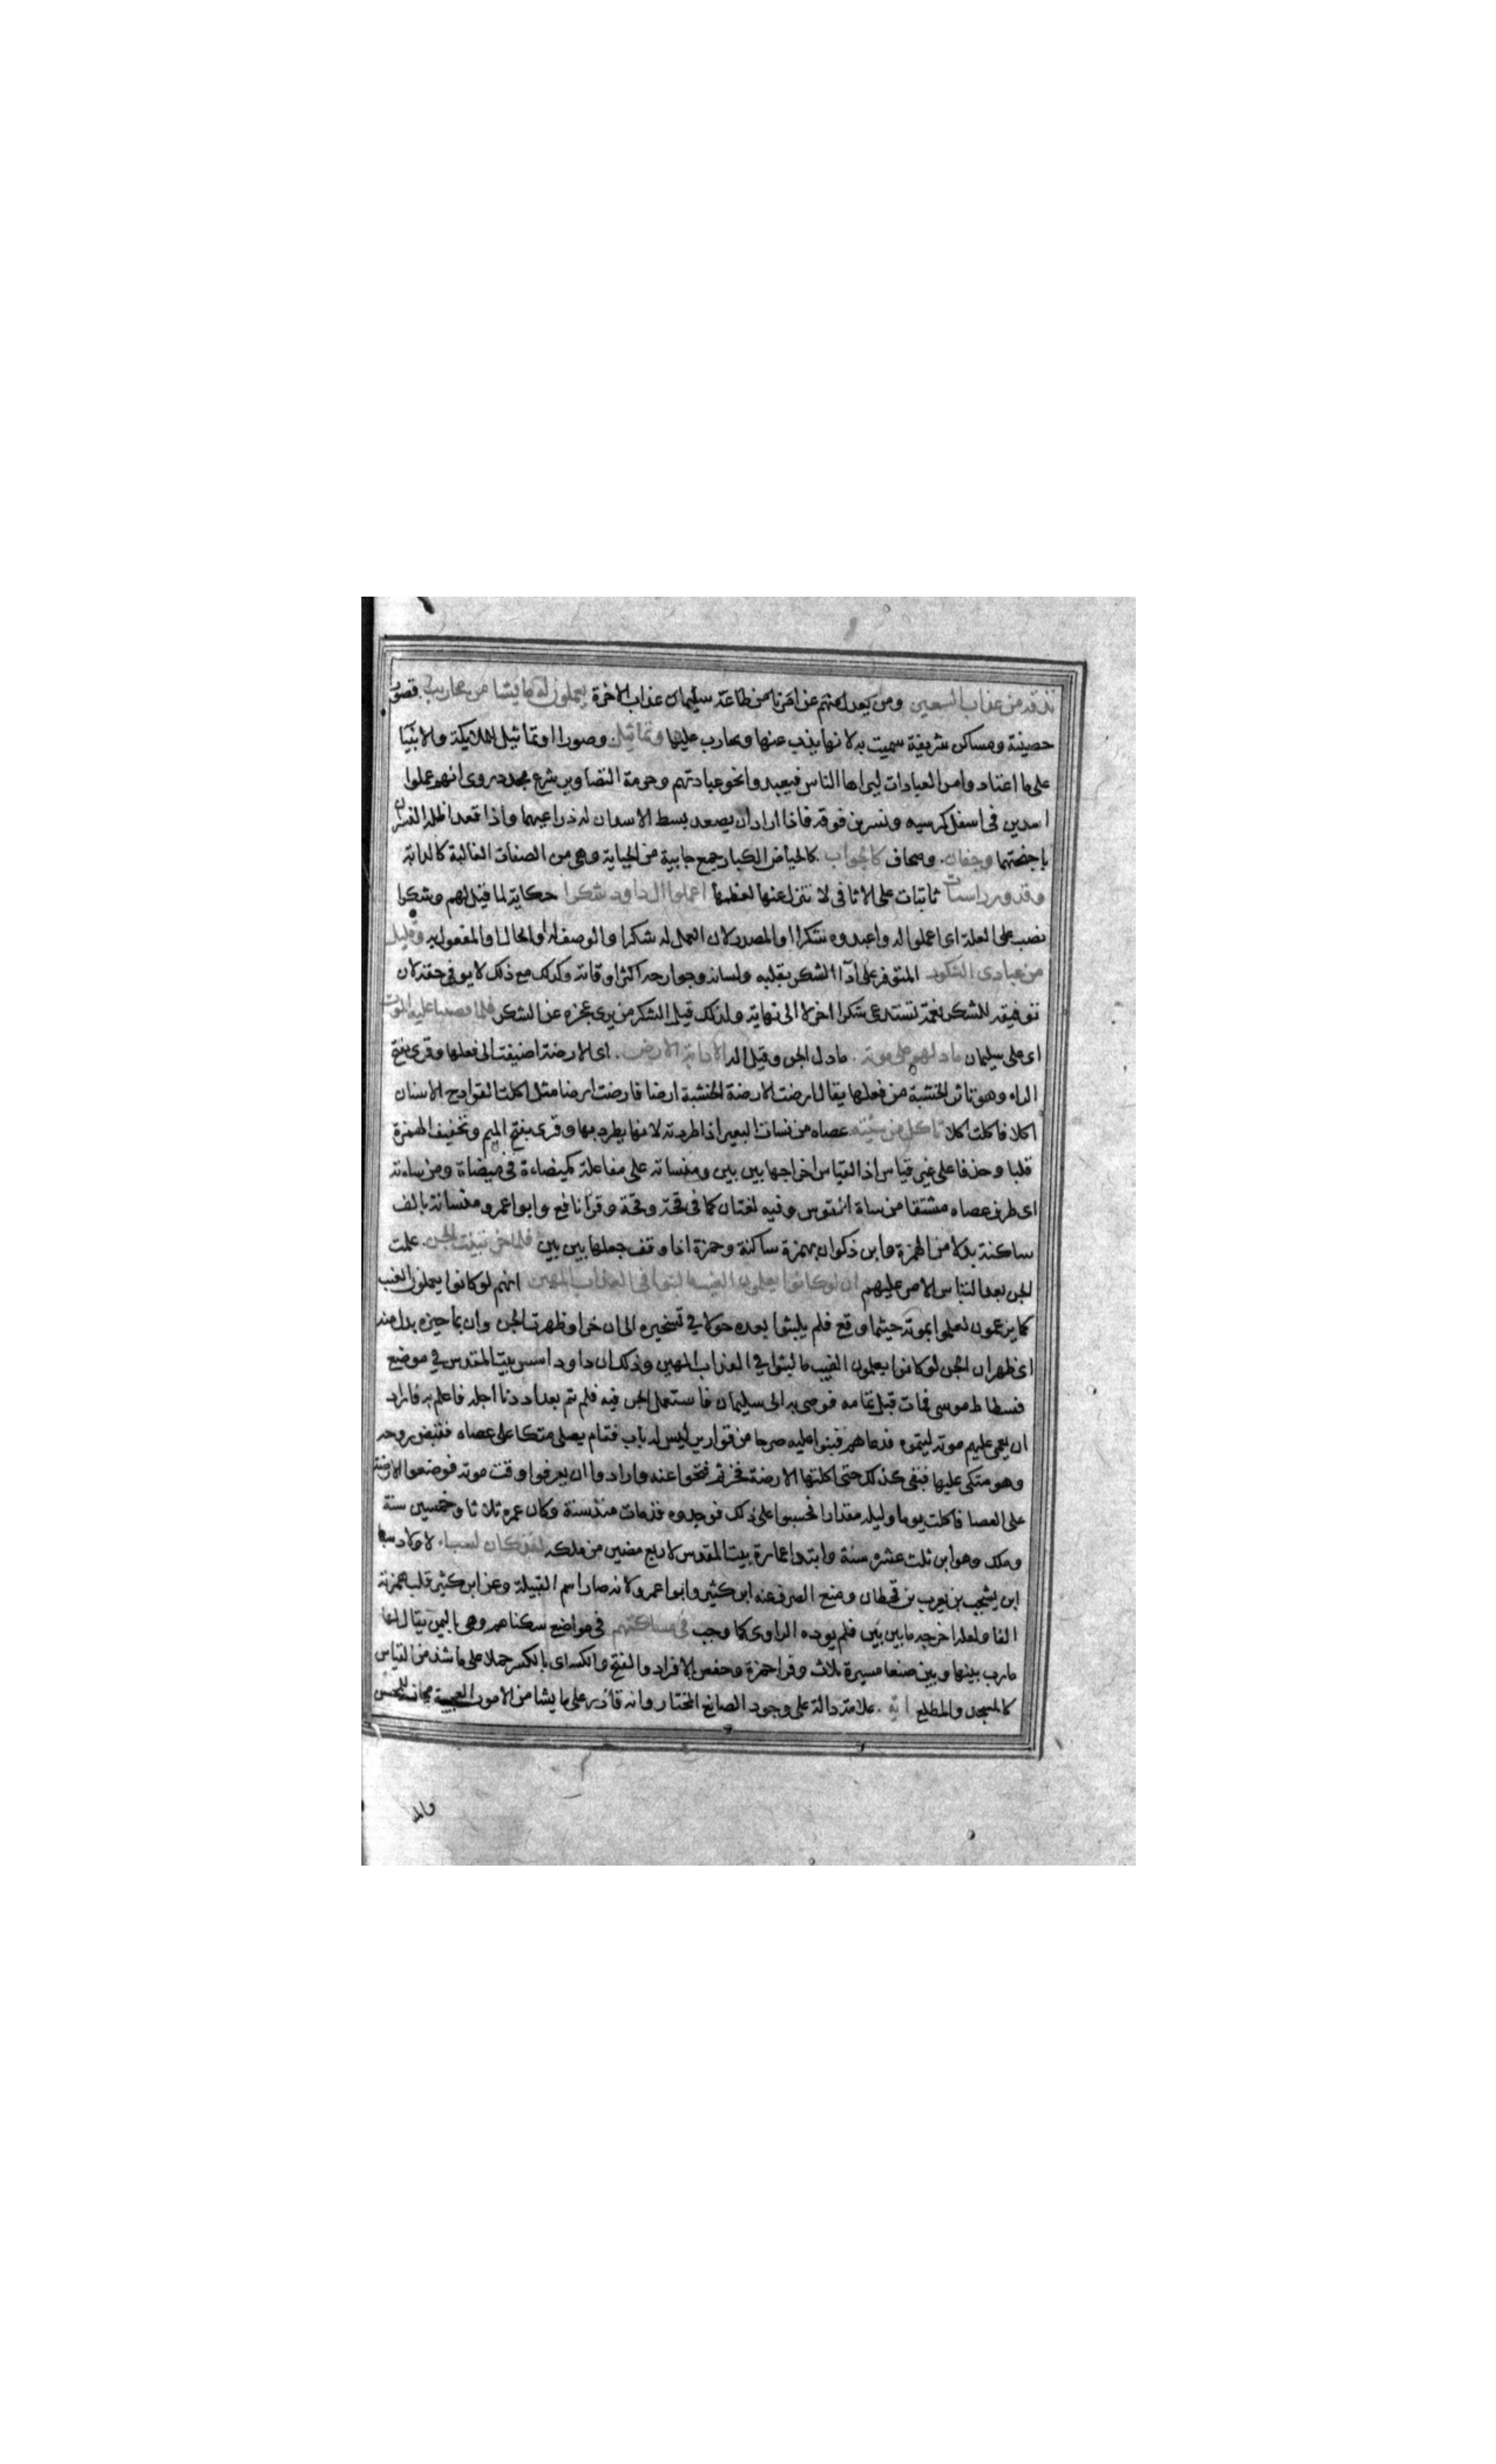 نذقه من عذاب السعير ومن يعدل منهم عن امرنا من طاعة سليمان عذاب الاخرة يعملون له ما يشا من محاريب قصورا
حصينة ومساكن شريفة سميت به لانها يذب عنها ويحارب عليها وتماثيل وصورا او تماثيل الملائيكة والانبيا
على ما اعتادوا من العبادات ليراها الناس فيعبدوا نحو عبادتهم وحرمة التصاوير شرع مجدد روى انهم عملوا
اسدين فى اسفل كرسيه ونسرين فوقه فاذا اراد ان يصعد بسط الاسدان له ذراعيهما واذا قعد اظله النسران
باجنحتهما وجفان وصحاف كالجواب كالحياض الكبار جمع جابية من الجباية وهى من الصفات الغالبة كالدابة
وقدور راسيات ثابتات على الاثافى لا تنزل عنها لعظمها اعملوا ال داود شكرا حكاية لما قيل لهم وشكرا
نصب على العلة اى اعملوا له واعبدوه شكرا او المصدر لان العمل له شكرا والوصف له او الحال او المفعول به وقليل
من عبادى الشكور المتوفر على آدا الشكر بقلبه ولسانه وجوارحه اكثر اوقاته وكذلك مع ذلك لا يوفى حقه لان
توفيقه للشكر نعمة تستدعى شكرا اخر لا الى نهاية ولذلك قيل الشكر من يرى عجزه عن الشكر فلما قضينا عليه الموت
اى على سليمان ما دلهم على موته ما دل الجن وقيل اله الا دابة الارض اى الارضة اضيفت الى فعلها وقرى بفتح
الراء وهو تاثر الخشبة من فعلها يقال ارضت الارضة الخشبة ارضا فارضت ارضا مثل اكلت القوادح الاسنان
اكلا فاكلت اكلا تاكل منسئته عصاه من نسات البعير اذا طردته لانها يطرد بها وقرى بفتح الميم وتخفيف الهمزة
قلبا وحذفا على غير قياس اذ القياس اخراجها بين بين ومنساته على مفاعلة كميضاءة فى ميضاة ومن ساءته
اى طرف عصاه مشتقا من ساة القوس وفيه لغتان كما فى قحة وقحة وقرا نافع وابو عمرو منساته بالف
ساكنة بدلا من الهمزة وابن ذكوان بهمزة ساكنة وحمزة اذا وقف جعلها بين بين فلما خر تبينت الجن علمت
الجن بعد التباس الامر عليهم ان لو كانوا يعلمون الغيب ما لبثوا فى العذاب المهين انهم لو كانوا يعلمون الغيب
كما يزعمون لعلموا بموته حيثما وقع فلم يلبثوا بعده حولا في تسخيره الى ان خر او ظهرت الجن وان بما حيزه بدل منه
اى ظهر ان الجن لو كانوا يعلمون الغيب ما لبثوا في العذاب المهين وذلك ان داود اسس بيت المقدس في موضع
فسطاط موسى فمات قبل تمامه فوصى به الى سليمان فاستعمل الجن فيه فلم تم بعد اد دنا اجله فاعلم به فاراد
ان يعمى عليهم موته ليتموه فدعاهم فبنوا عليه صرحا من قوارير ليس له باب فقام يصلى متكا على عصاه فقبض روحه
وهو متكى عليها فبقى كذلك حتى اكلتها الارضة فخر ثم فتحوا عنه وارادوا ان يعرفوا وقت موته فوضعوا الارضة
على العصا فاكلت يوما وليله مقدارا فحسبوا على ذلك فوجدوه قد مات منذ سنة وكان عمره ثلاثا وخمسين سنة
وملك وهو ابن ثلث عشره سنة وابتدا عمارة بيت المقدس لاربع مضين من ملكه لقد كان لسبا لاولاد سبا
ابن يشجب بن يعرب بن قحطان ومنع الصرف عنه ابن كثير وابو عمرو لانه صار اسم القبيلة وعن ابن كثير قلب همزته
الفا ولعله اخرجه ما بين بين فلم يوده الراوى كما وجب فى مساكنهم فى مواضع سكناهم وهى باليمن يقال لها
مارب بينها وبين صنعا مسيرة ثلاث وقرا حمزة وحفص بالافراد والفتح والكساى بالكسر حملا على ما شذ من القياس
كالمسجد والمطلع اية علامة دالة على وجود الصانع المختار وانه قادر على ما يشا من الامور العجيبة مجاز للمحسن